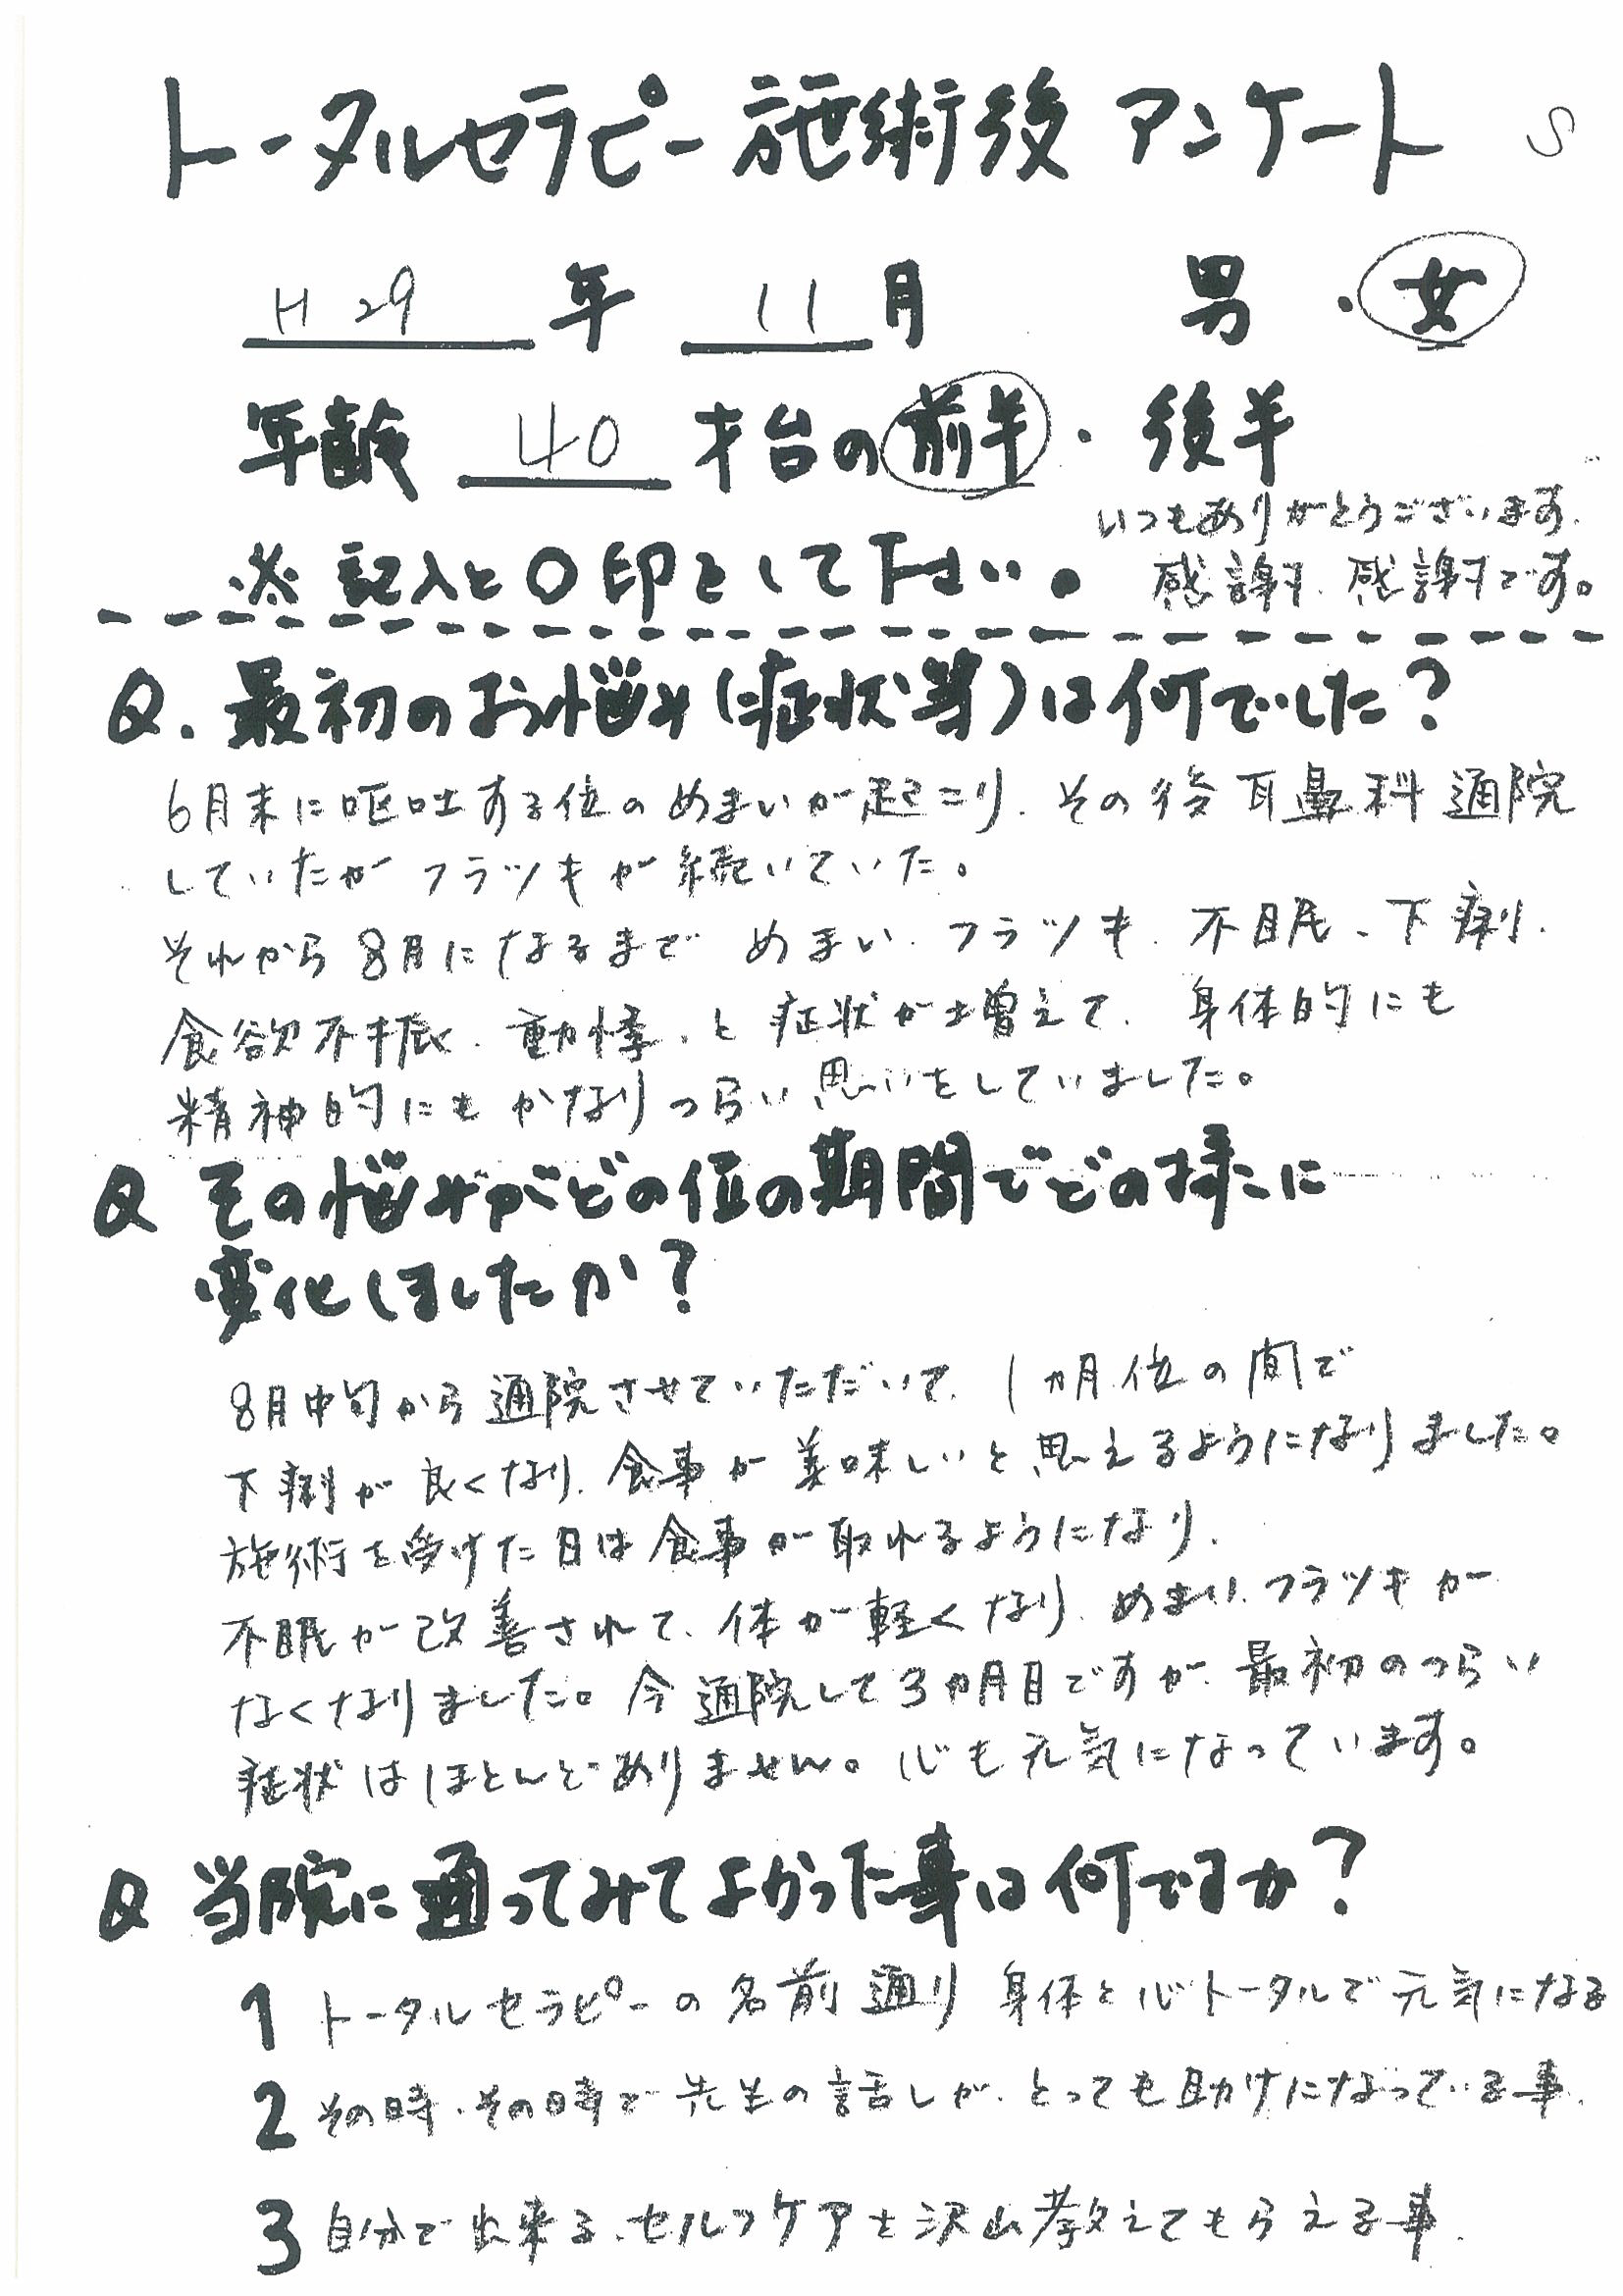 トータルセラピー施術後アンケート S
H29年 11月 男・女
年齢 40才台の前半・後半
いつもありがとうございます。
※記入と○印をして下さい。 感謝、感謝です。
Q.最初のお悩み(症状等)は何でした?
6月末に嘔吐する位のめまいが起こり、その後耳鼻科通院
していたがフラツキが続いていた。
それから8月になるまで めまい、フラツキ、不眠、下痢、
食欲不振、動悸、と症状が増えて、身体的にも
精神的にもかなりつらい思いをしていました。
Q その悩みがどの位の期間でどの様に
変化しましたか?
8月中旬から通院させていただいて、1ヵ月位の間で
下痢が良くなり、食事が美味しいと思えるようになりました。
施術を受けた日は食事が取れるようになり、
不眠が改善されて、体が軽くなり、めまい、フラツキが
なくなりました。今通院して3ヵ月目ですが、最初のつらい
症状はほとんどありません。心も元気になっています。
Q 当院に通ってみてよかった事は何ですか?
1 トータルセラピーの名前通り 身体と心トータルで元気になる
2 その時、その時で先生の話しが、とっても助けになっている事、
3 自分で出来る、セルフケアを沢山教えてもらえる事、